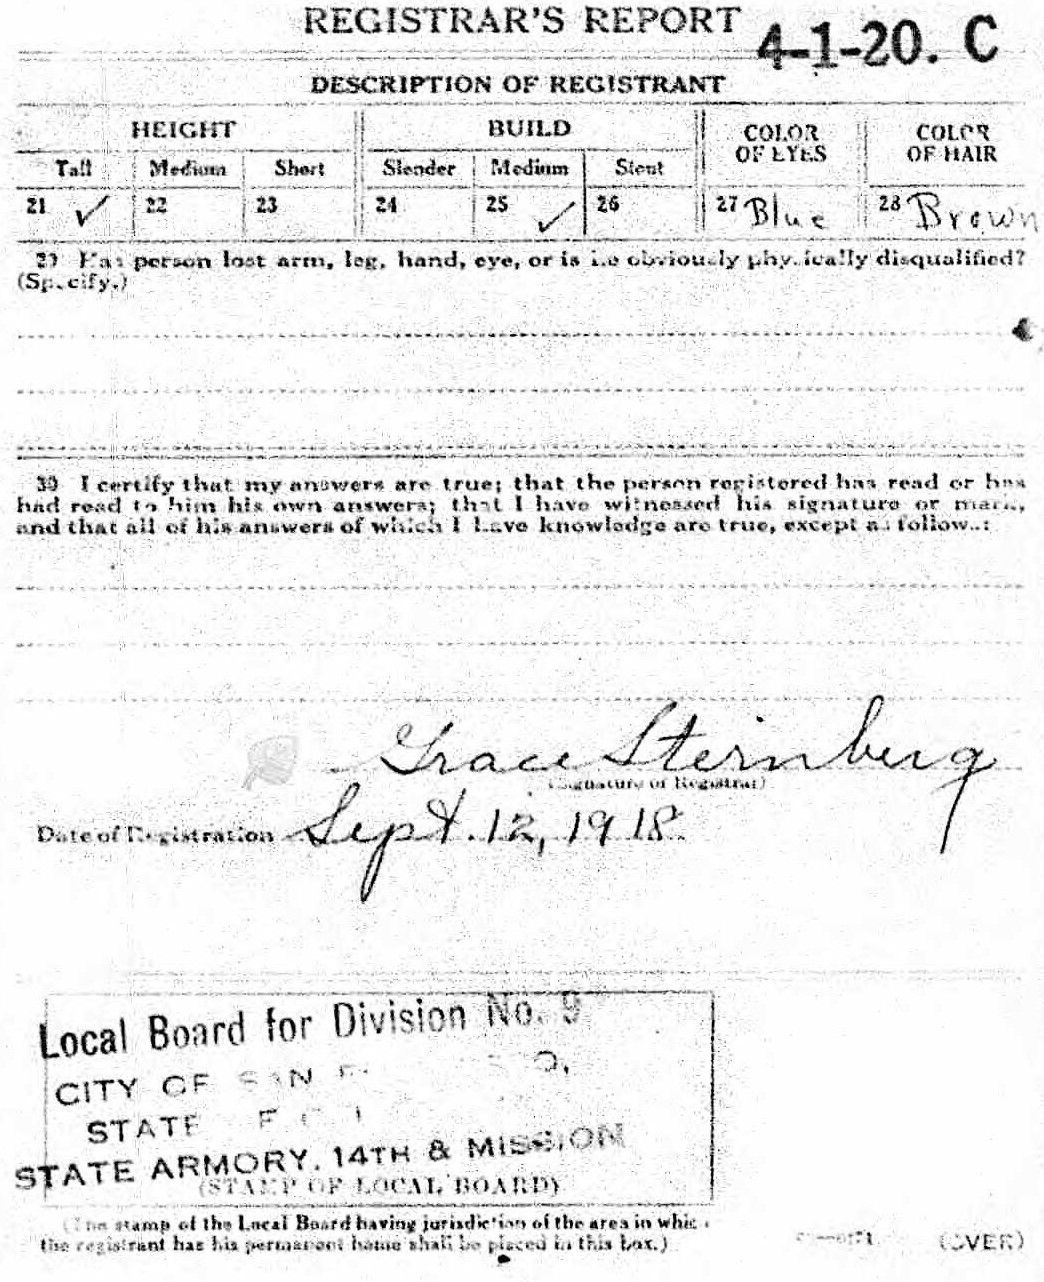 REGISTRAR'S REPORT
4-1-20. C
DESCRIPTION OF REGISTRANT
HEIGHT BUILD COLOR OF EYES COLOR OF HAIR
Tall Medium Short Slender Medium Stout
21 ✓ 22 23 24 25 ✓ 26 27 Blue 28 Brown
29 Has person lost arm, leg, hand, eye, or is he obviously physically disqualified?
(Specify.)
30 I certify that my answers are true; that the person registered has read or has
had read to him his own answers; that I have witnessed his signature or mark,
and that all of his answers of which I have knowledge are true, except as follows:
Grace Sternberg
(Signature of Registrar)
Date of Registration Sept. 12, 1918
Local Board for Division No. 9
CITY OF SAN
STATE
STATE ARMORY, 14TH & MISSION
(STAMP OF LOCAL BOARD)
(The stamp of the Local Board having jurisdiction of the area in which
the registrant has his permanent home shall be placed in this box.)
(OVER)